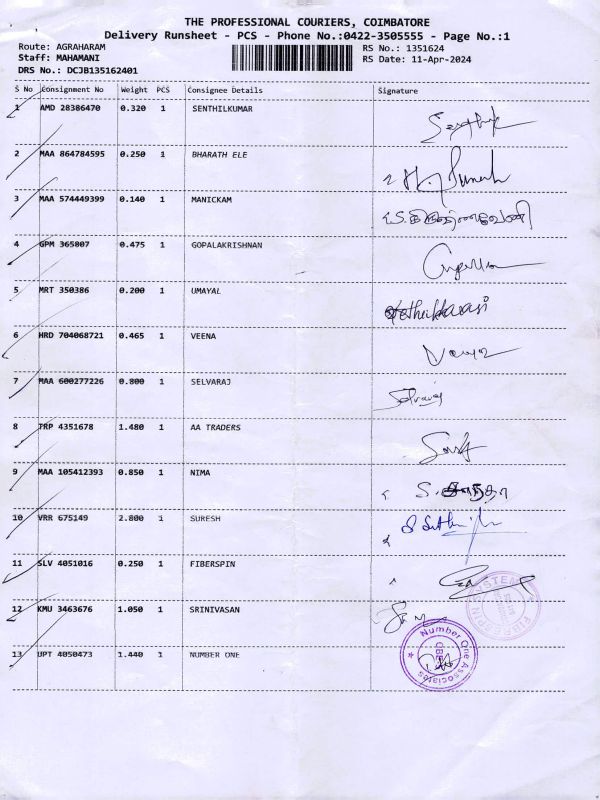 THE PROFESSIONAL COURIERS, COIMBATORE
Delivery Runsheet - PCS - Phone No.:0422-3505555 - Page No.:1
Route: AGRAHARAM RS No.: 1351624
Staff: MAHAMANI RS Date: 11-Apr-2024
DRS No.: DCJB135162401
S No Consignment No Weight PCS Consignee Details Signature
1 AMD 28386470 0.320 1 SENTHILKUMAR
2 MAA 864784595 0.250 1 BHARATH ELE
3 MAA 574449399 0.140 1 MANICKAM
4 GPM 365807 0.475 1 GOPALAKRISHNAN
5 MRT 350386 0.200 1 UMAYAL
6 HRD 704068721 0.465 1 VEENA
7 MAA 600277226 0.800 1 SELVARAJ Selvaraj
8 TRP 4351678 1.480 1 AA TRADERS
9 MAA 105412393 0.850 1 NIMA
10 VRR 675149 2.800 1 SURESH
11 SLV 4051016 0.250 1 FIBERSPIN
12 KMU 3463676 1.050 1 SRINIVASAN
13 UPT 4050473 1.440 1 NUMBER ONE
Number One Associates
CBE